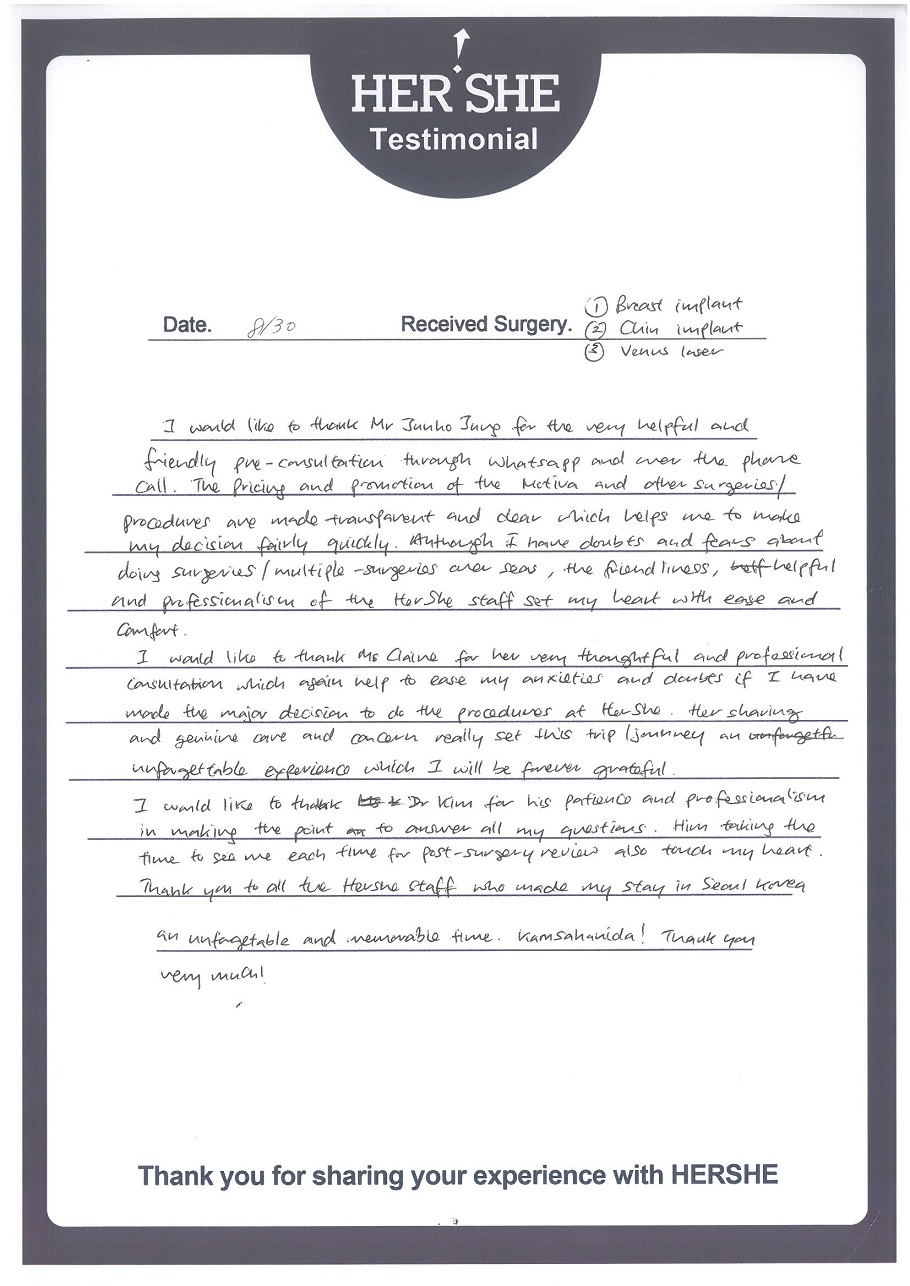 HER SHE
Testimonial
Date. 8/30 Received Surgery. ① Breast implant
② Chin implant
③ Venus laser
I would like to thank Mr Junho Jung for the very helpful and
friendly pre-consultation through whatsapp and over the phone
call. The Pricing and promotion of the Motiva and other surgeries/
procedures are made transparent and clear which helps me to make
my decision fairly quickly. Although I have doubts and fears about
doing surgeries/multiple-surgeries over seas, the friendliness, helpful
and professionalism of the HerShe staff set my heart with ease and
comfort.
I would like to thank Ms Claine for her very thoughtful and professional
consultation which again help to ease my anxieties and doubts if I have
made the major decision to do the procedures at HerShe. Her sharing
and genuine care and concern really set this trip/journey an unforgetta
unforgettable experience which I will be forever grateful.
I would like to thank Dr Kim for his patience and professionalism
in making the point to answer all my questions. Him taking the
time to see me each time for post-surgery review also touch my heart.
Thank you to all the Hershe staff who made my stay in Seoul Korea
an unfogetable and memorable time. Kamsahamida! Thank you
very much!
Thank you for sharing your experience with HERSHE